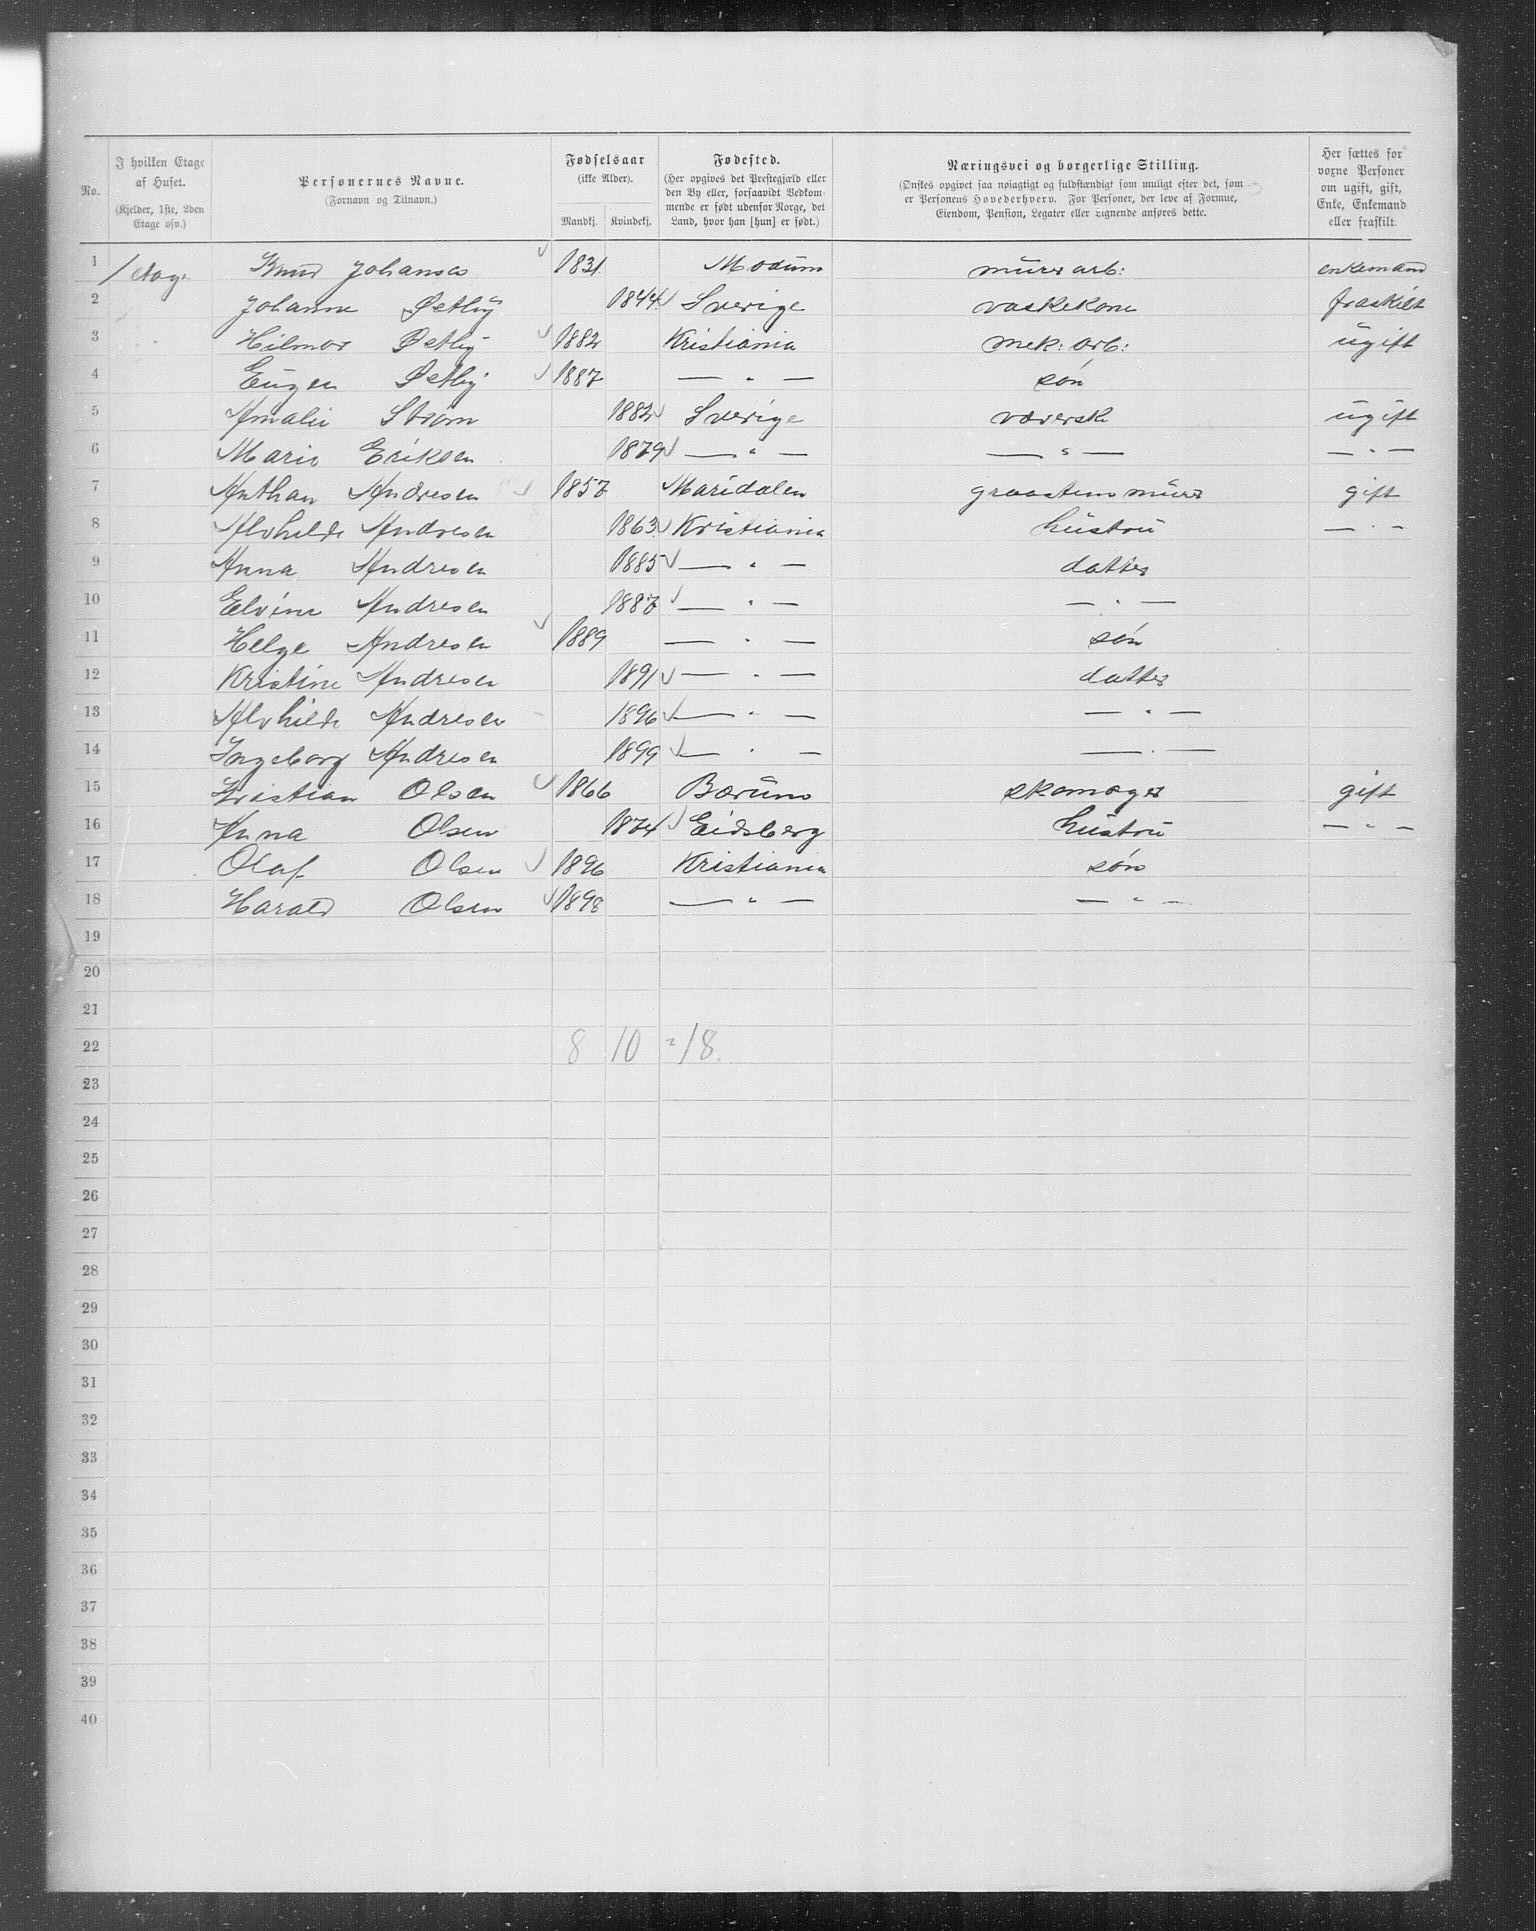 No. | I hvilken Etage af Huset. (Kjelder, 1ste, 2den Etage osv.) | Personernes Navne. (Fornavn og Tilnavn.) | Fødselsaar (ikke Alder). Mandkj. | Kvindekj. | Fødested. (Her opgives det Prestegjæld eller den By eller, forsaavidt Vedkommende er født udenfor Norge, det Land, hvor han [hun] er født.) | Næringsvei og borgerlige Stilling. (Ønskes opgivet saa nøiagtigt og fuldstændigt som muligt efter det, som er Personens Hovederhverv. For Personer, der leve af Formue, Eiendom, Pension, Legater eller Lignende anføres dette. | Her sættes for voxne Personer om ugift, gift, Enke, Enkemand eller fraskilt.
1 | 1 etage | Knud Johansen | 1831 | | Modum | murer arb: | enkemand
2 | | Johanne Østby | | 1844 | Sverige | vaskekone | fraskilt
3 | | Hilmar Østby | 1882 | | Kristiania | mek: arb: | ugift
4 | | Eugen Østby | 1887 | | — " — | søn
5 | | Amalie Strøm | | 1882 | Sverige | væverske | ugift
6 | | Marie Eriksen | | 1879 | — " — | — " — | — " —
7 | | Anthan Andresen | 1857 | | Maridalen | graastens murer | gift
8 | | Alvhilde Andresen | | 1863 | Kristiania | hustru | — " —
9 | | Anna Andresen | | 1885 | — " — | datter
10 | | Elvine Andresen | | 1887 | — " — | — " —
11 | | Helge Andresen | 1889 | | — " — | søn
12 | | Kristine Andresen | | 1891 | — " — | datter
13 | | Alvhilde Andresen | | 1896 | — " — | — " —
14 | | Ingeborg Andresen | | 1899 | — " — | — " —
15 | | Kristian Olsen | 1866 | | Bærum | skomager | gift
16 | | Anna Olsen | | 1874 | Eidsberg | hustru | — " —
17 | | Olaf Olsen | 1896 | | Kristiania | søn
18 | | Harald Olsen | 1898 | | — " — | — " —
19
20
21
22 | | | 8 | 10 | = 18.
23
24
25
26
27
28
29
30
31
32
33
34
35
36
37
38
39
40